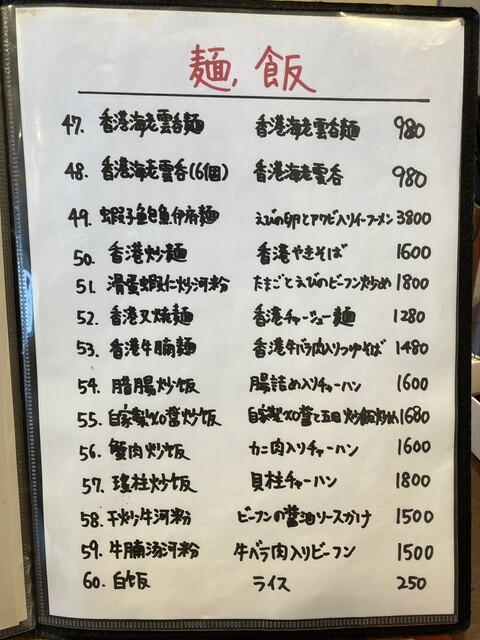 麺, 飯
47. 香港海老雲呑麺 香港海老雲呑麺 980
48. 香港海老雲呑(6個) 香港海老雲呑 980
49. 蝦子鮑魚伊府麺 えびの卵とアワビ入りイーフーメン 3800
50. 香港炒麺 香港やきそば 1600
51. 滑蛋蝦仁炒河粉 たまごとえびのビーフン炒め 1800
52. 香港叉焼麺 香港チャーシュー麺 1280
53. 香港牛腩麺 香港牛バラ肉入りつゆそば 1480
54. 腊腸炒饭 腸詰め入りチャーハン 1600
55. 自家製XO醤炒饭 自家製XO醤と五目炒飯炒め 1680
56. 蟹肉炒饭 カニ肉入りチャーハン 1600
57. 瑤柱炒饭 貝柱チャーハン 1800
58. 干炒牛河粉 ビーフンの醤油ソースかけ 1500
59. 牛腩汤河粉 牛バラ肉入りビーフン 1500
60. 白饭 ライス 250